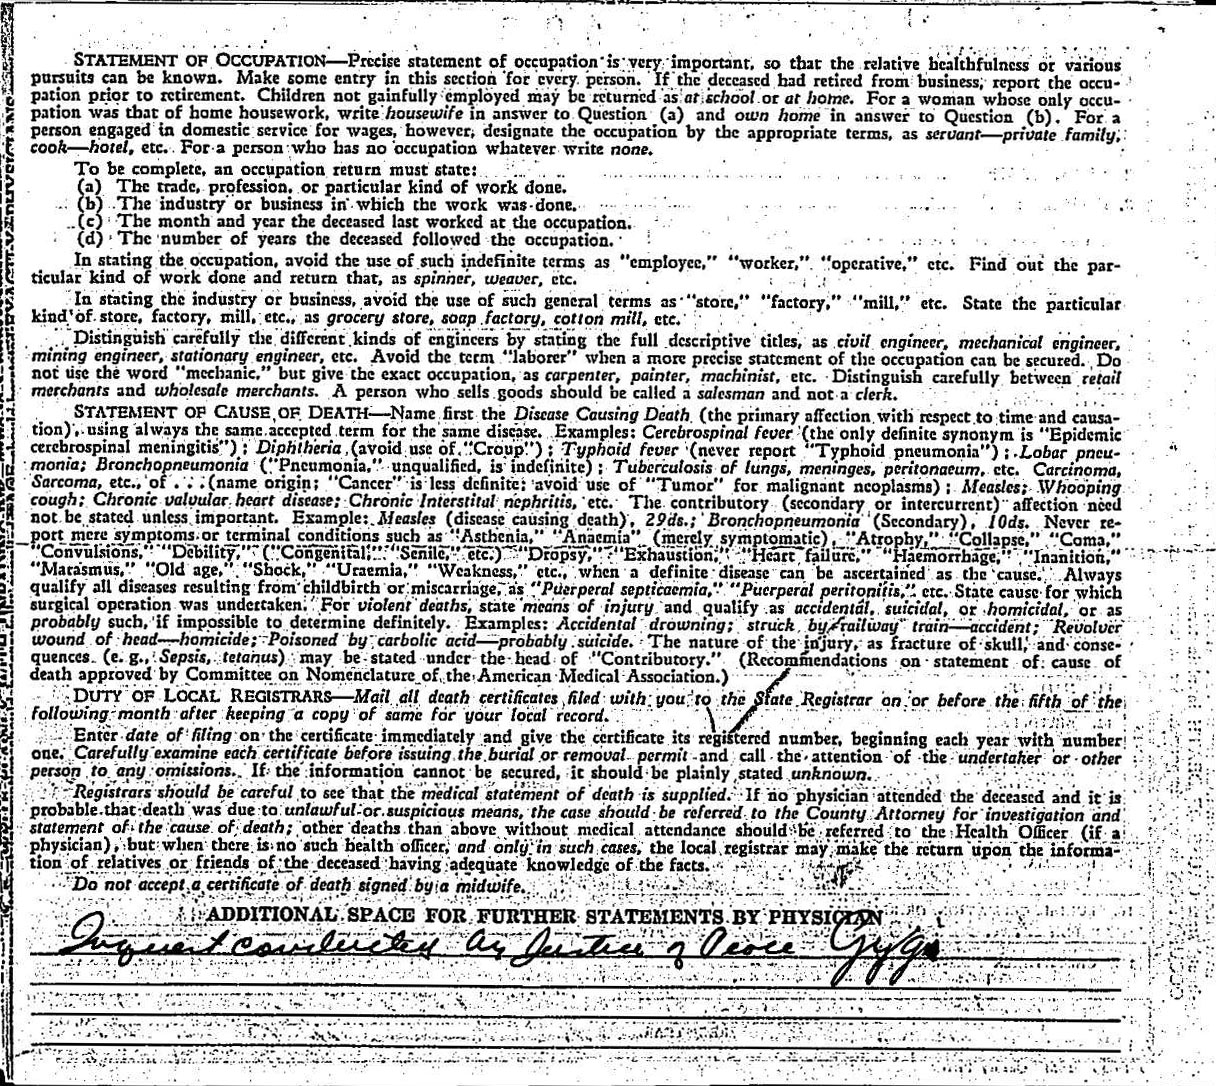 STATEMENT OF OCCUPATION—Precise statement of occupation is very important, so that the relative healthfulness or various
pursuits can be known. Make some entry in this section for every person. If the deceased had retired from business, report the occu-
pation prior to retirement. Children not gainfully employed may be returned as at school or at home. For a woman whose only occu-
pation was that of home housework, write housewife in answer to Question (a) and own home in answer to Question (b). For a
person engaged in domestic service for wages, however, designate the occupation by the appropriate terms, as servant—private family,
cook—hotel, etc. For a person who has no occupation whatever write none.
To be complete, an occupation return must state:
(a) The trade, profession, or particular kind of work done.
(b) The industry or business in which the work was done.
(c) The month and year the deceased last worked at the occupation.
(d) The number of years the deceased followed the occupation.
In stating the occupation, avoid the use of such indefinite terms as "employee," "worker," "operative," etc. Find out the par-
ticular kind of work done and return that, as spinner, weaver, etc.
In stating the industry or business, avoid the use of such general terms as "store," "factory," "mill," etc. State the particular
kind of store, factory, mill, etc., as grocery store, soap factory, cotton mill, etc.
Distinguish carefully the different kinds of engineers by stating the full descriptive titles, as civil engineer, mechanical engineer,
mining engineer, stationary engineer, etc. Avoid the term "laborer" when a more precise statement of the occupation can be secured. Do
not use the word "mechanic," but give the exact occupation, as carpenter, painter, machinist, etc. Distinguish carefully between retail
merchants and wholesale merchants. A person who sells goods should be called a salesman and not a clerk.
STATEMENT OF CAUSE OF DEATH—Name first the Disease Causing Death (the primary affection with respect to time and causa-
tion), using always the same accepted term for the same disease. Examples: Cerebrospinal fever (the only definite synonym is "Epidemic
cerebrospinal meningitis"); Diphtheria (avoid use of "Croup"); Typhoid fever (never report "Typhoid pneumonia"); Lobar pneu-
monia; Bronchopneumonia ("Pneumonia," unqualified, is indefinite); Tuberculosis of lungs, meninges, peritonaeum, etc. Carcinoma,
Sarcoma, etc., of . . . (name origin; "Cancer" is less definite; avoid use of "Tumor" for malignant neoplasms); Measles; Whooping
cough; Chronic valvular heart disease; Chronic Interstital nephritis, etc. The contributory (secondary or intercurrent) affection need
not be stated unless important. Example: Measles (disease causing death), 29ds.; Bronchopneumonia (Secondary), 10ds. Never re-
port mere symptoms or terminal conditions such as "Asthenia," "Anaemia" (merely symptomatic), "Atrophy," "Collapse," "Coma,"
"Convulsions," "Debility," ("Congenital," "Senile," etc.) "Dropsy," "Exhaustion," "Heart failure," "Haemorrhage," "Inanition,"
"Marasmus," "Old age," "Shock," "Uraemia," "Weakness," etc., when a definite disease can be ascertained as the cause. Always
qualify all diseases resulting from childbirth or miscarriage, as "Puerperal septicaemia," "Puerperal peritonitis," etc. State cause for which
surgical operation was undertaken. For violent deaths, state means of injury and qualify as accidental, suicidal, or homicidal, or as
probably such, if impossible to determine definitely. Examples: Accidental drowning; struck by railway train—accident; Revolver
wound of head—homicide; Poisoned by carbolic acid—probably suicide. The nature of the injury, as fracture of skull, and conse-
quences (e. g., Sepsis, tetanus) may be stated under the head of "Contributory." (Recommendations on statement of cause of
death approved by Committee on Nomenclature of the American Medical Association.)
DUTY OF LOCAL REGISTRARS—Mail all death certificates filed with you to the State Registrar on or before the fifth of the
following month after keeping a copy of same for your local record.
Enter date of filing on the certificate immediately and give the certificate its registered number, beginning each year with number
one. Carefully examine each certificate before issuing the burial or removal permit and call the attention of the undertaker or other
person to any omissions. If the information cannot be secured, it should be plainly stated unknown.
Registrars should be careful to see that the medical statement of death is supplied. If no physician attended the deceased and it is
probable that death was due to unlawful or suspicious means, the case should be referred to the County Attorney for investigation and
statement of the cause of death; other deaths than above without medical attendance should be referred to the Health Officer (if a
physician), but when there is no such health officer, and only in such cases, the local registrar may make the return upon the informa-
tion of relatives or friends of the deceased having adequate knowledge of the facts.
Do not accept a certificate of death signed by a midwife.
ADDITIONAL SPACE FOR FURTHER STATEMENTS BY PHYSICIAN
Inquest conducted by Justice of Peace